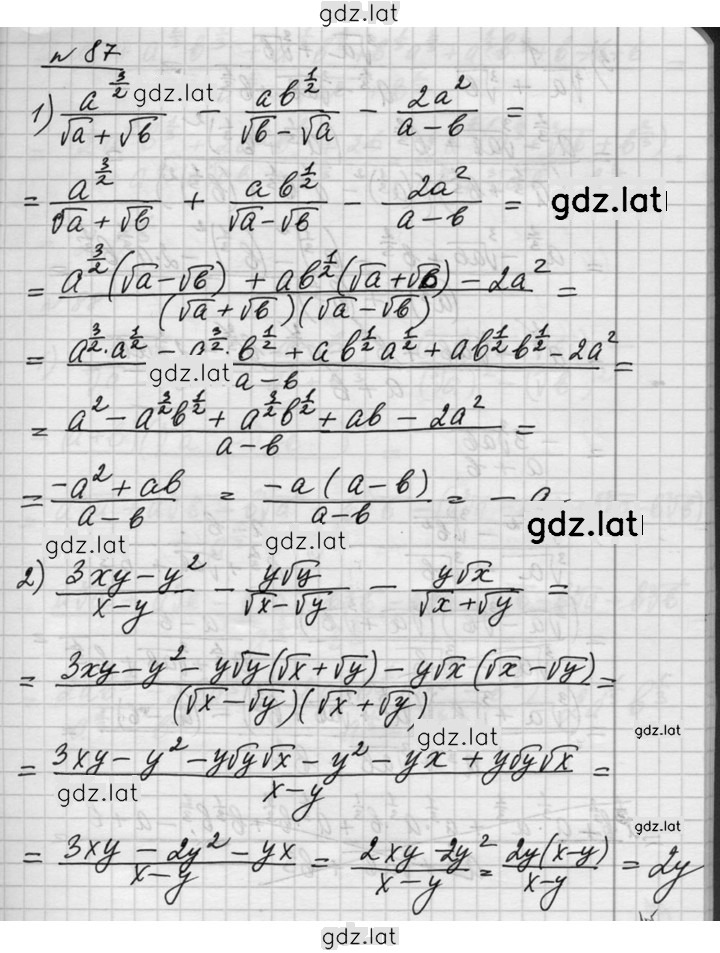 gdz.lat
№ 87
1) a^(3/2)/(√a + √b) − ab^(1/2)/(√b − √a) − 2a²/(a − b) = gdz.lat
= a^(3/2)/(√a + √b) + ab^(1/2)/(√a − √b) − 2a²/(a − b) = gdz.lat
= (a^(3/2)(√a − √b) + ab^(1/2)(√a + √b) − 2a²)/((√a + √b)(√a − √b)) =
= (a^(3/2)·a^(1/2) − a^(3/2)·b^(1/2) + ab^(1/2)a^(1/2) + ab^(1/2)b^(1/2) − 2a²)/(a − b) = gdz.lat
= (a² − a^(3/2)b^(1/2) + a^(3/2)b^(1/2) + ab − 2a²)/(a − b) =
= (−a² + ab)/(a − b) = −a(a − b)/(a − b) = − a
gdz.lat gdz.lat gdz.lat
2) (3xy − y²)/(x − y) − y√y/(√x − √y) − y√x/(√x + √y) =
= (3xy − y² − y√y(√x + √y) − y√x(√x − √y))/((√x − √y)(√x + √y)) =
gdz.lat gdz.lat
= (3xy − y² − y√y√x − y² − yx + y√y√x)/(x − y) =
gdz.lat gdz.lat
= (3xy − 2y² − yx)/(x − y) = (2xy − 2y²)/(x − y) = 2y(x − y)/(x − y) = 2y
gdz.lat